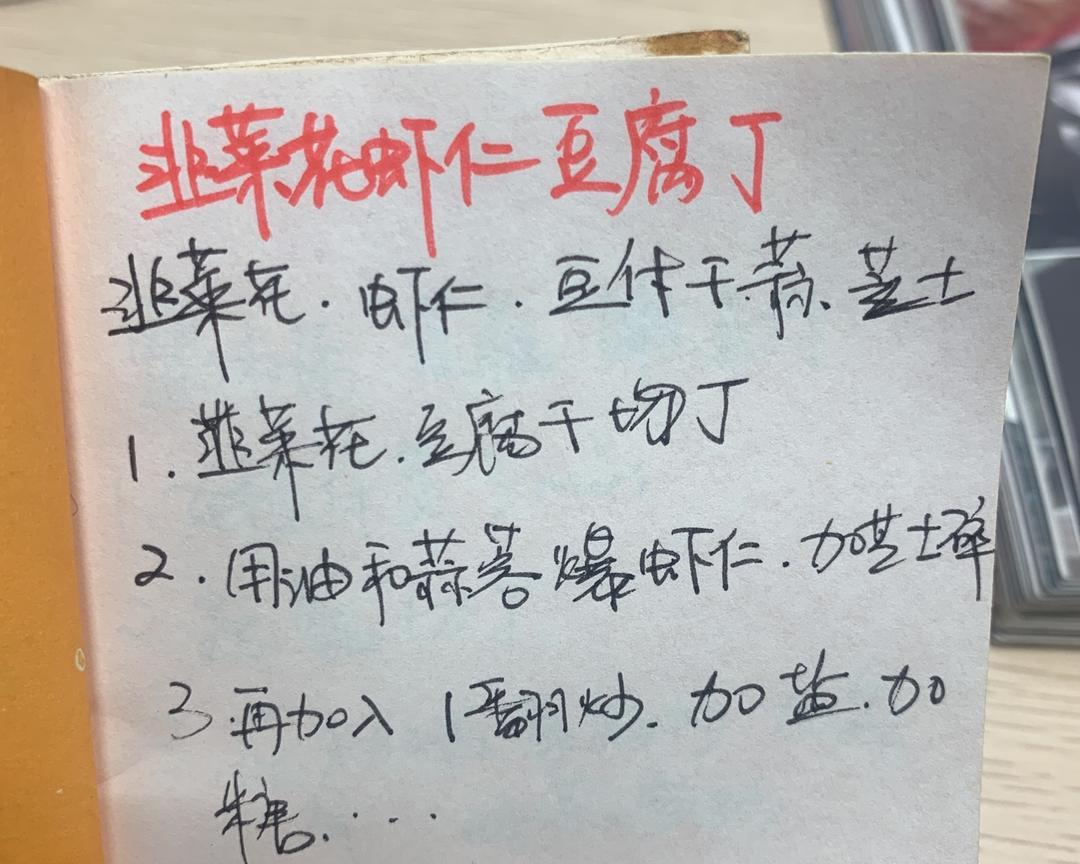 韭菜花虾仁豆腐丁
韭菜花.虾仁.豆付干.蒜.芝士
1.韭菜花.豆腐干切丁
2.用油和蒜蓉爆虾仁.加芝士碎
3.再加入1翻炒.加盐.加
糖....